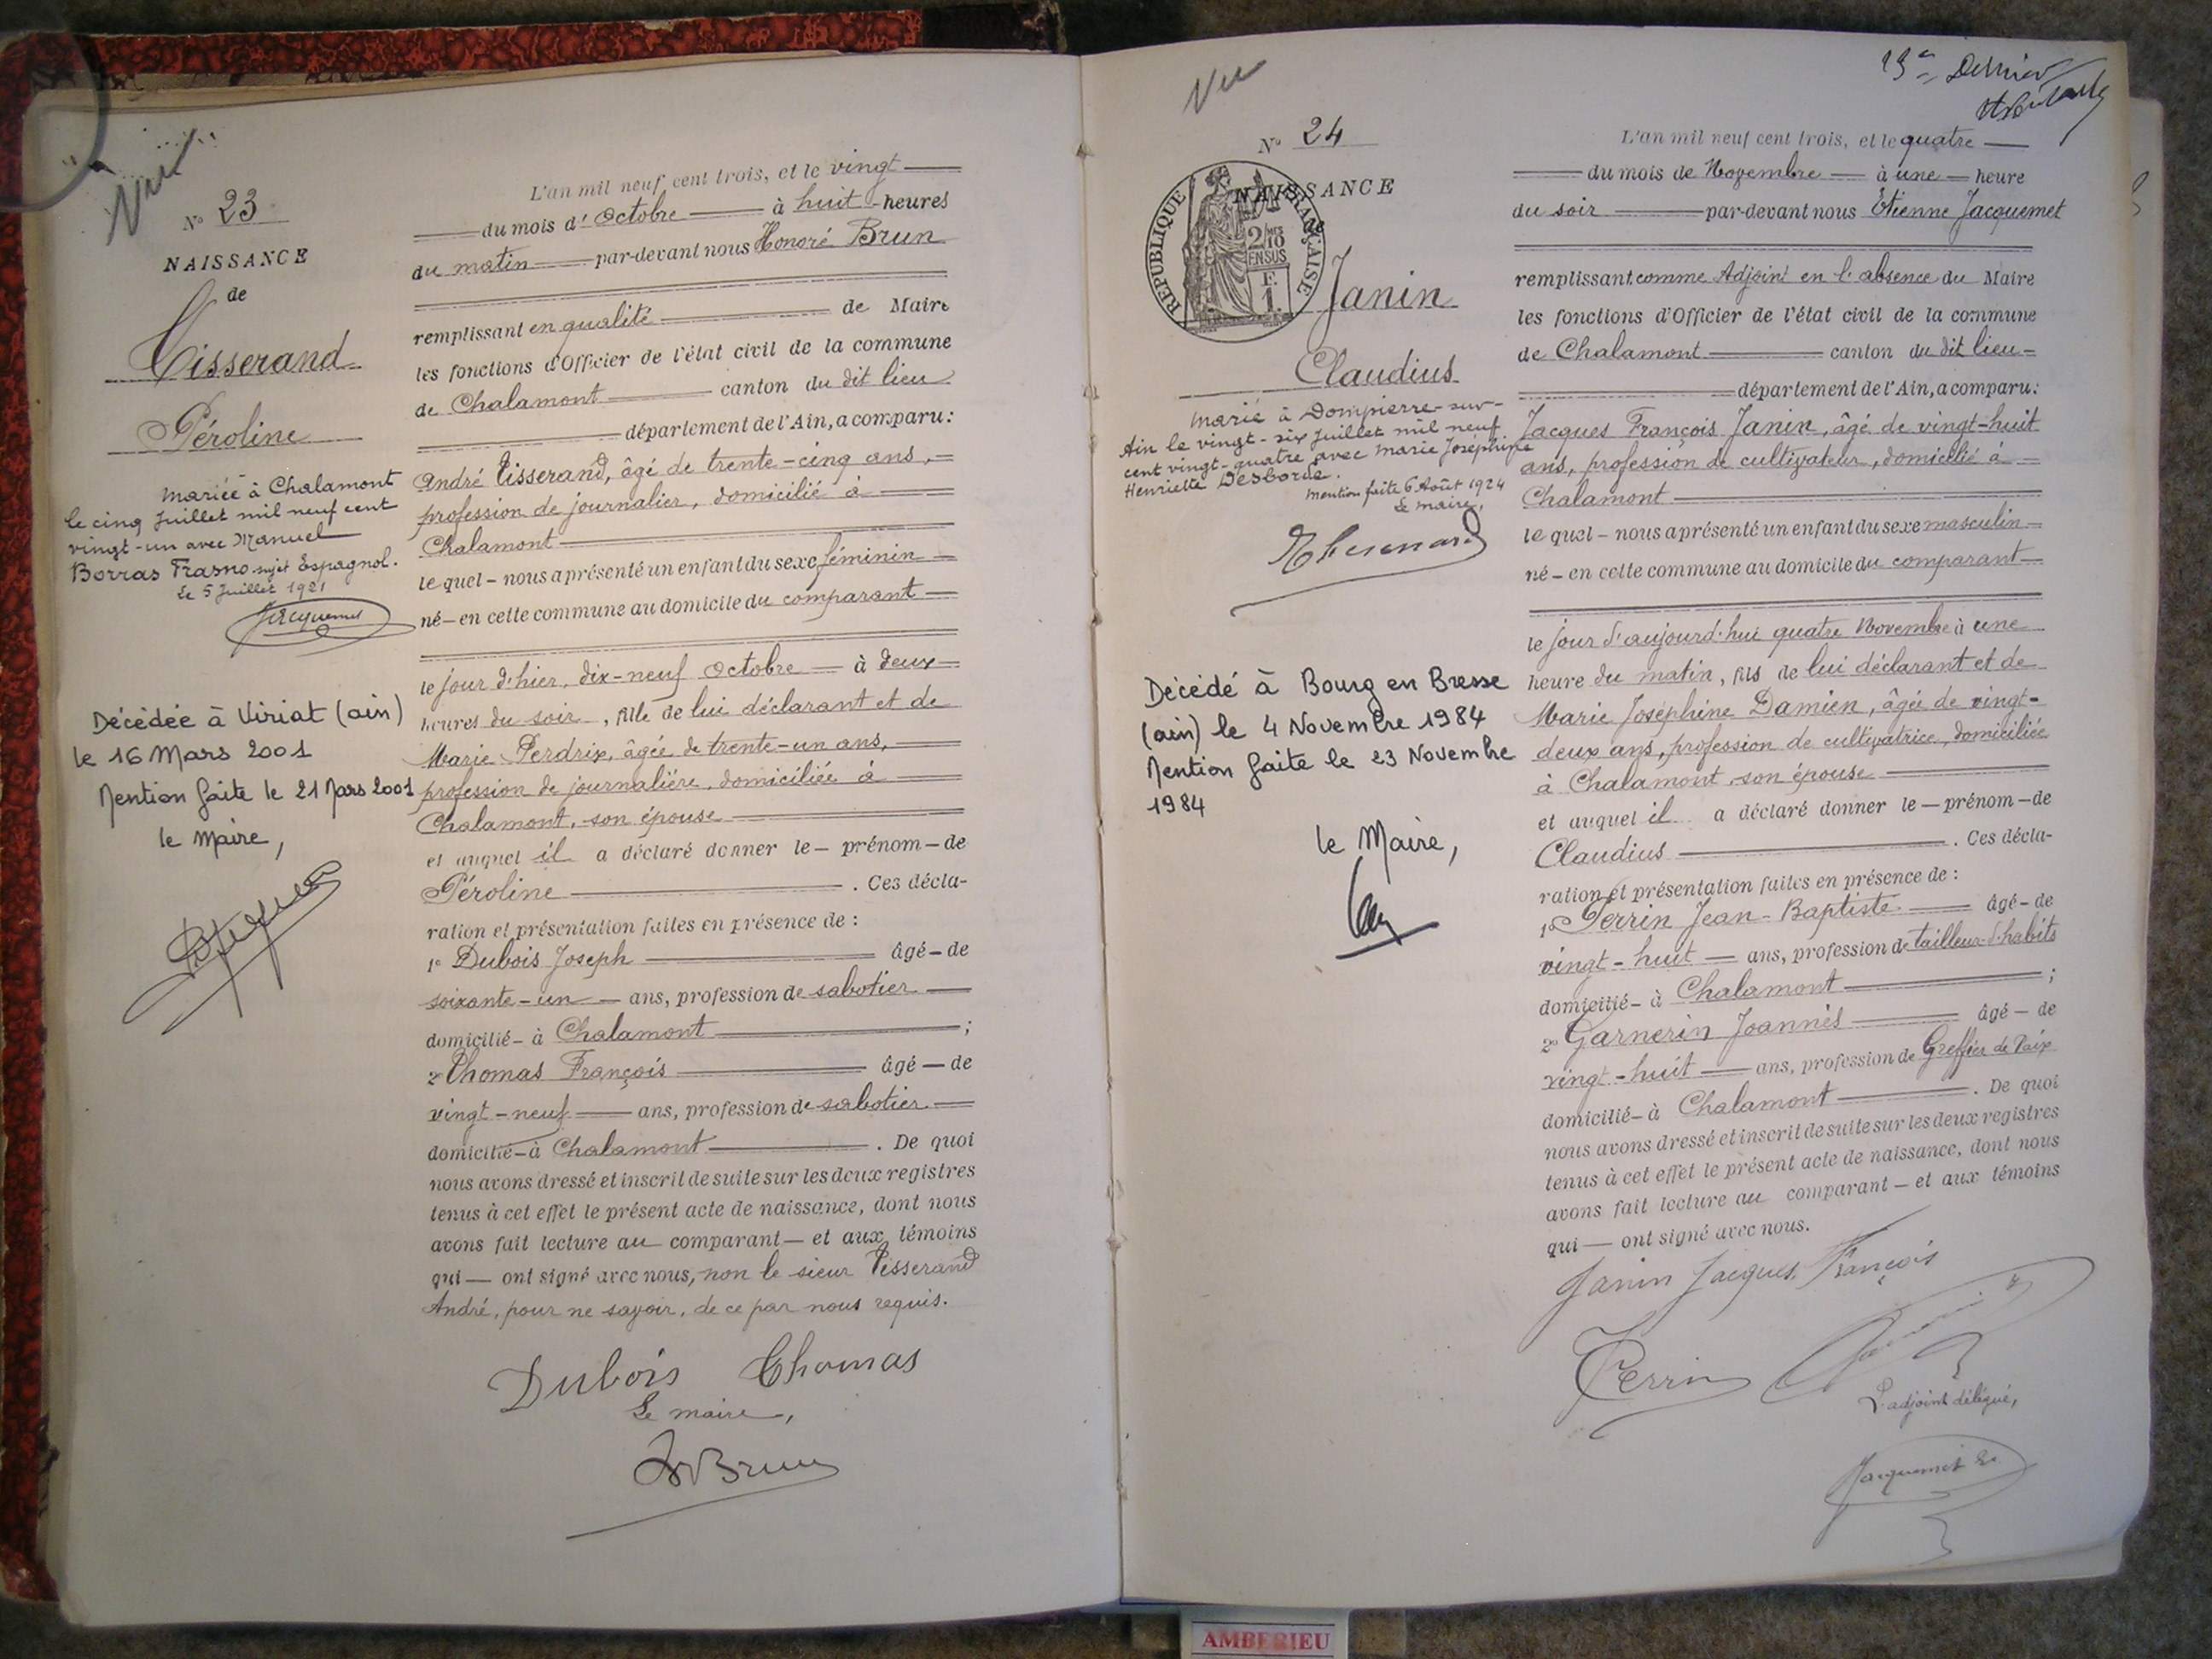 Vu
N° 23
NAISSANCE
de
Tisserand
Péroline
Mariée à Chalamont
le cinq Juillet mil neuf cent
vingt-un avec Manuel
Borras Frasno sujet Espagnol.
Le 5 Juillet 1921
Jacquemet
Décédée à Viriat (ain)
le 16 Mars 2001
Mention faite le 21 Mars 2001
le Maire,
L'an mil neuf cent trois, et le vingt
du mois d'Octobre à huit heures
du matin par-devant nous Honoré Brun
remplissant en qualité de Maire
les fonctions d'Officier de l'état civil de la commune
de Chalamont canton du dit lieu
département de l'Ain, a comparu :
André Tisserand, âgé de trente-cinq ans,
profession de journalier, domicilié à
Chalamont
le quel - nous a présenté un enfant du sexe féminin
né - en cette commune au domicile du comparant
le jour d'hier, dix-neuf Octobre à deux
heures du soir, fille de lui déclarant et de
Marie Perdrix, âgée de trente-un ans,
profession de journalière, domiciliée à
Chalamont, son épouse
et auquel il a déclaré donner le - prénom - de
Péroline . Ces décla-
ration et présentation faites en présence de :
1° Dubois Joseph âgé - de
soixante-un ans, profession de sabotier
domicilié - à Chalamont ;
2° Thomas François âgé - de
vingt-neuf ans, profession de sabotier
domicilié - à Chalamont . De quoi
nous avons dressé et inscrit de suite sur les deux registres
tenus à cet effet le présent acte de naissance, dont nous
avons fait lecture au comparant - et aux témoins
qui - ont signé avec nous, non le sieur Tisserand
André, pour ne savoir, de ce par nous requis.
Dubois Thomas
Le maire,
Brun
Vu
19e Dernier
N° 24
NAISSANCE
de
REPUBLIQUE FRANÇAISE
2/10 EN SUS
F. 1
Janin
Claudius
Marié à Dompierre-sur-
Ain le vingt-six Juillet mil neuf
cent vingt-quatre avec Marie Joséphine
Henriette Desborde.
Mention faite 6 Août 1924
Le maire,
Décédé à Bourg en Bresse
(ain) le 4 Novembre 1984
Mention faite le 23 Novembre
1984
le Maire,
L'an mil neuf cent trois, et le quatre
du mois de Novembre à une heure
du soir par-devant nous Etienne Jacquemet
remplissant comme Adjoint en l'absence du Maire
les fonctions d'Officier de l'état civil de la commune
de Chalamont canton du dit lieu
département de l'Ain, a comparu :
Jacques François Janin, âgé de vingt-huit
ans, profession de cultivateur, domicilié à
Chalamont
le quel - nous a présenté un enfant du sexe masculin
né - en cette commune au domicile du comparant
le jour d'aujourd'hui quatre Novembre à une
heure du matin, fils de lui déclarant et de
Marie Joséphine Damien, âgée de vingt-
deux ans, profession de cultivatrice, domiciliée
à Chalamont, son épouse
et auquel il a déclaré donner le - prénom - de
Claudius . Ces décla-
ration et présentation faites en présence de :
1° Perrin Jean-Baptiste âgé - de
vingt-huit ans, profession de tailleur d'habits
domicilié - à Chalamont ;
2° Garnerin Joannès âgé - de
vingt-huit ans, profession de Greffier de Paix
domicilié - à Chalamont . De quoi
nous avons dressé et inscrit de suite sur les deux registres
tenus à cet effet le présent acte de naissance, dont nous
avons fait lecture au comparant - et aux témoins
qui - ont signé avec nous.
Janin Jacques François
Perrin
L'adjoint délégué,
Jacquemet
AMBERIEU